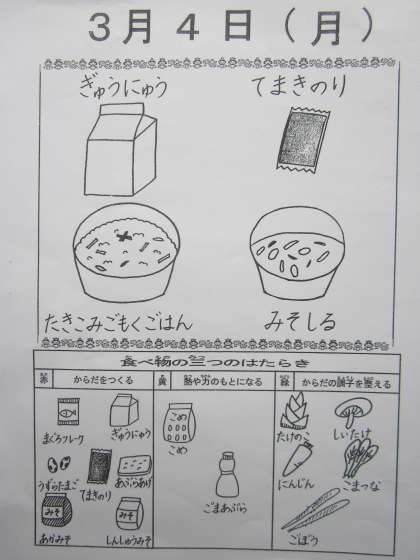 3月4日(月)
ぎゅうにゅう
てまきのり
たきこみごもくごはん
みそしる
食べ物の三つのはたらき
赤 からだをつくる 黄 熱や力のもとになる 緑 からだの調子を整える
まぐろフレーク
ぎゅうにゅう
うずらたまご
てまきのり
あぶらあげ
みそ
あかみそ
みそ
しんしゅうみそ
こめ
こめ
ごまあぶら
たけのこ
しいたけ
にんじん
こまつな
ごぼう